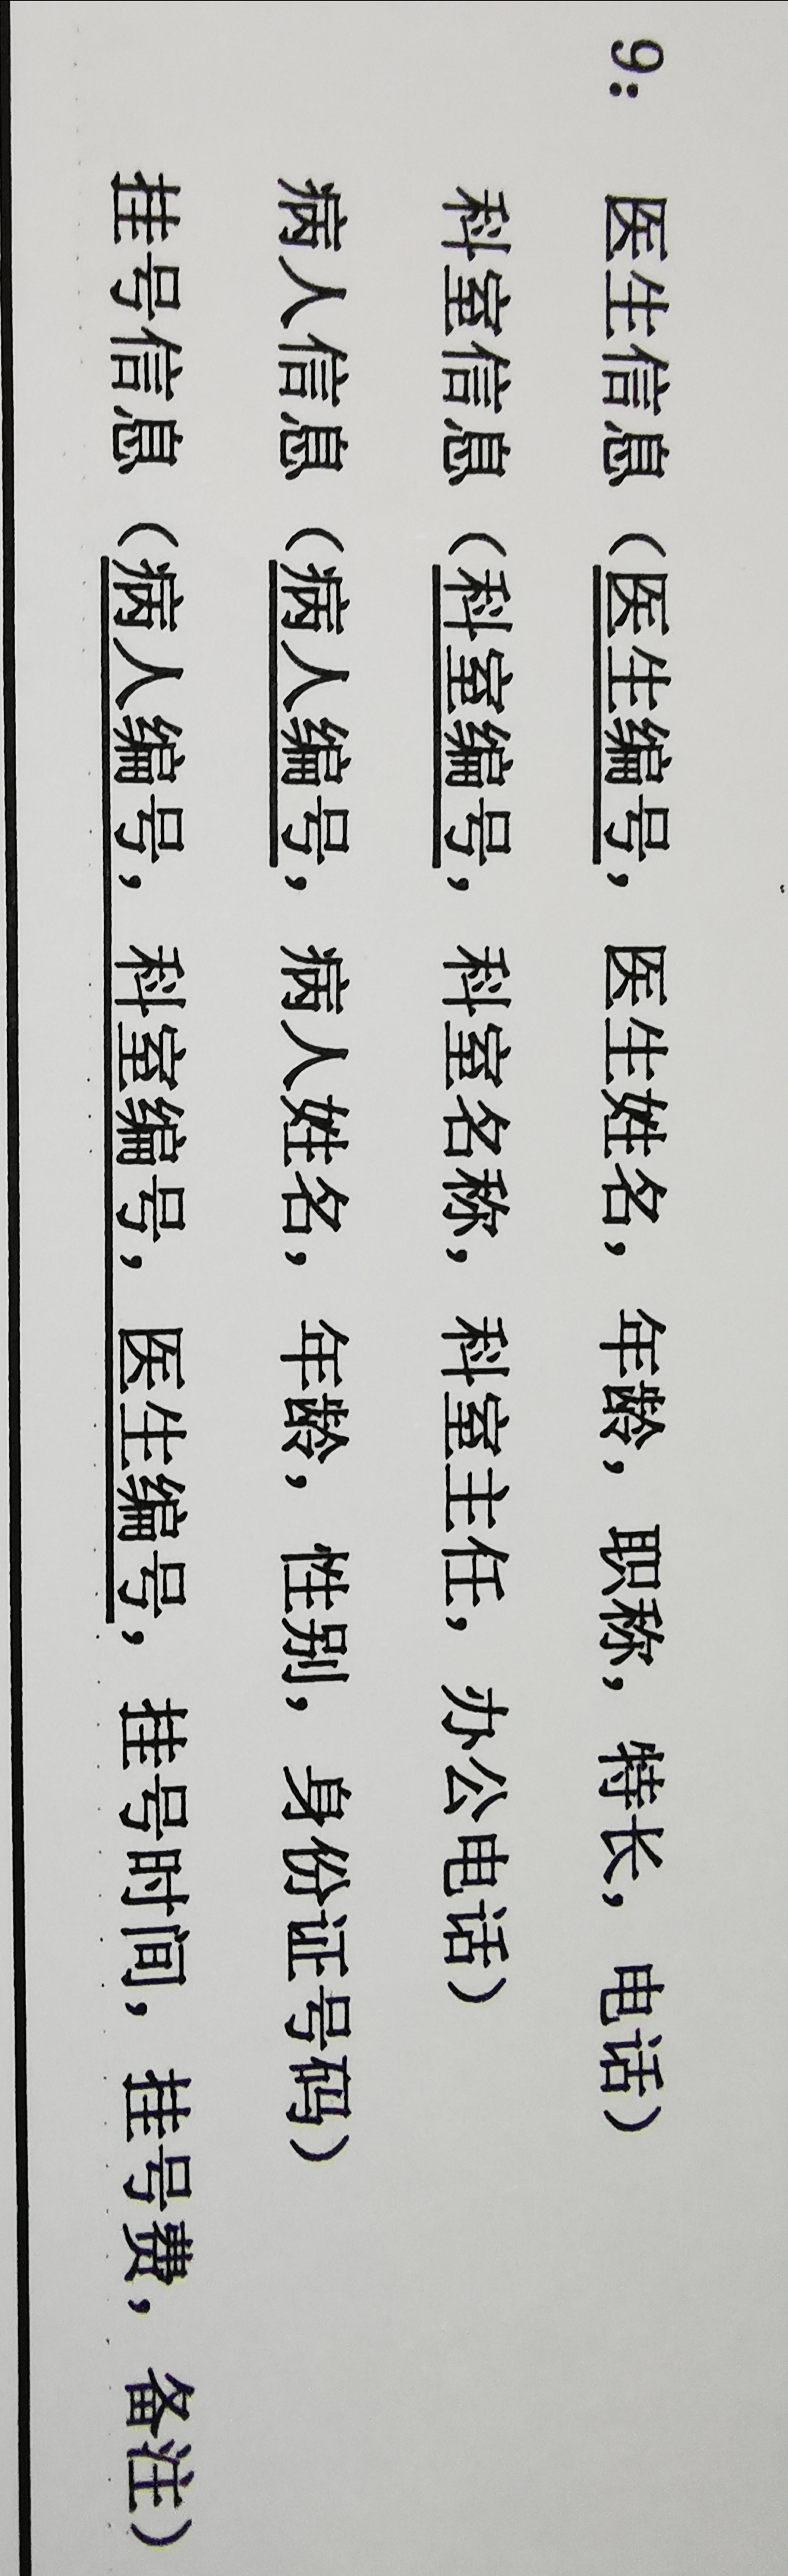 9: 医生信息（医生编号，医生姓名，年龄，职称，特长，电话）
科室信息（科室编号，科室名称，科室主任，办公电话）
病人信息（病人编号，病人姓名，年龄，性别，身份证号码）
挂号信息（病人编号，科室编号，医生编号，挂号时间，挂号费，备注）